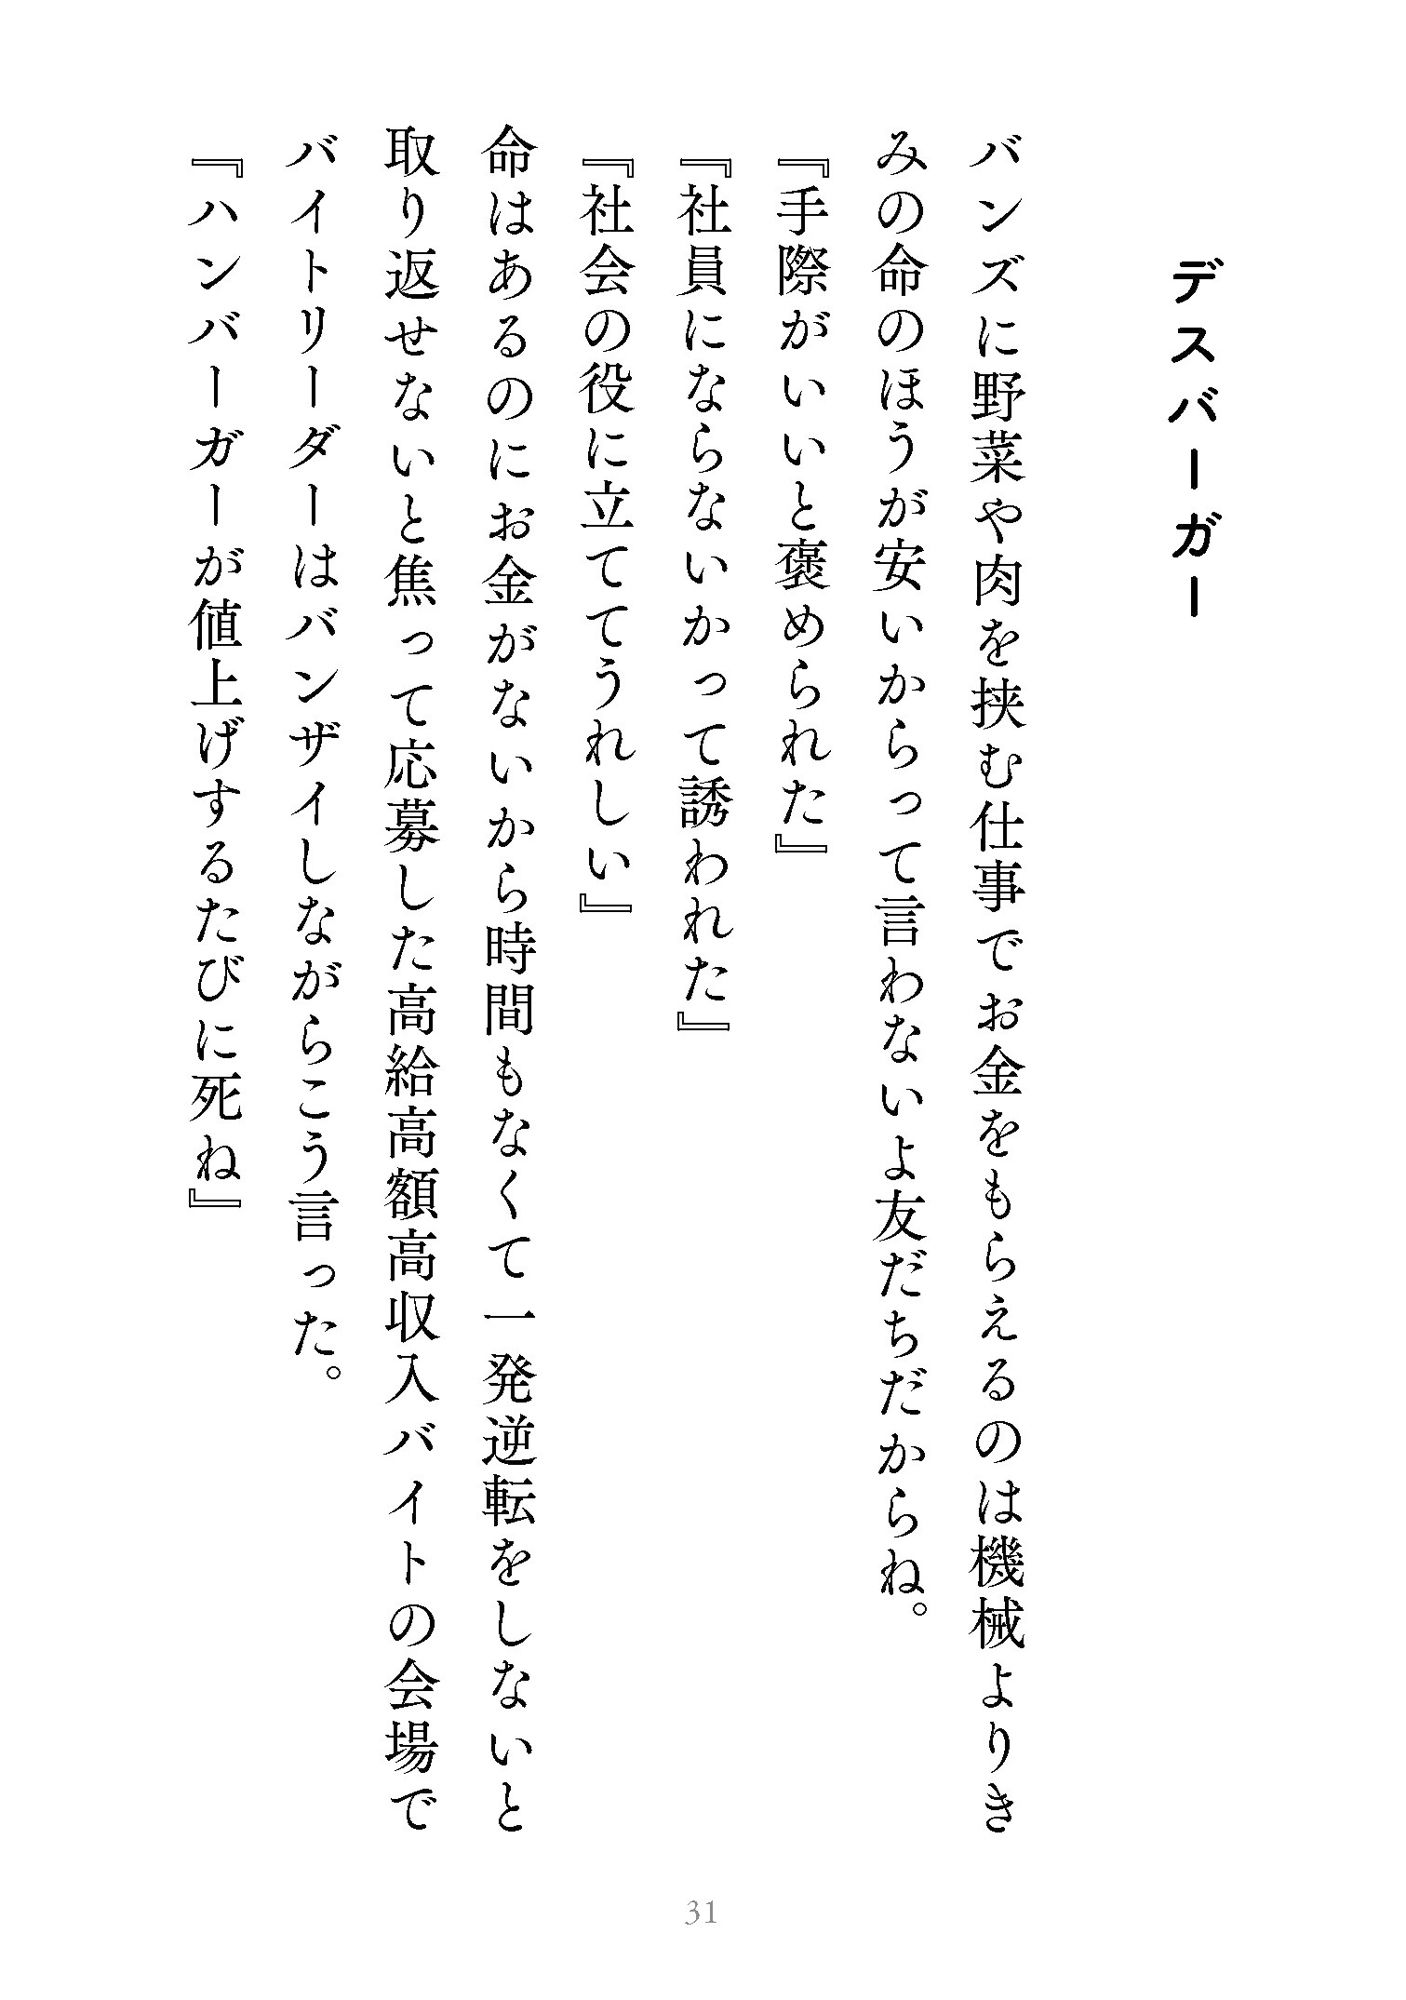 デスバーガー
バンズに野菜や肉を挟む仕事でお金をもらえるのは機械よりき
みの命のほうが安いからって言わないよ友だちだからね。
『手際がいいと褒められた』
『社員にならないかって誘われた』
『社会の役に立ててうれしい』
命はあるのにお金がないから時間もなくて一発逆転をしないと
取り返せないと焦って応募した高給高額高収入バイトの会場で
バイトリーダーはバンザイしながらこう言った。
『ハンバーガーが値上げするたびに死ね』
31